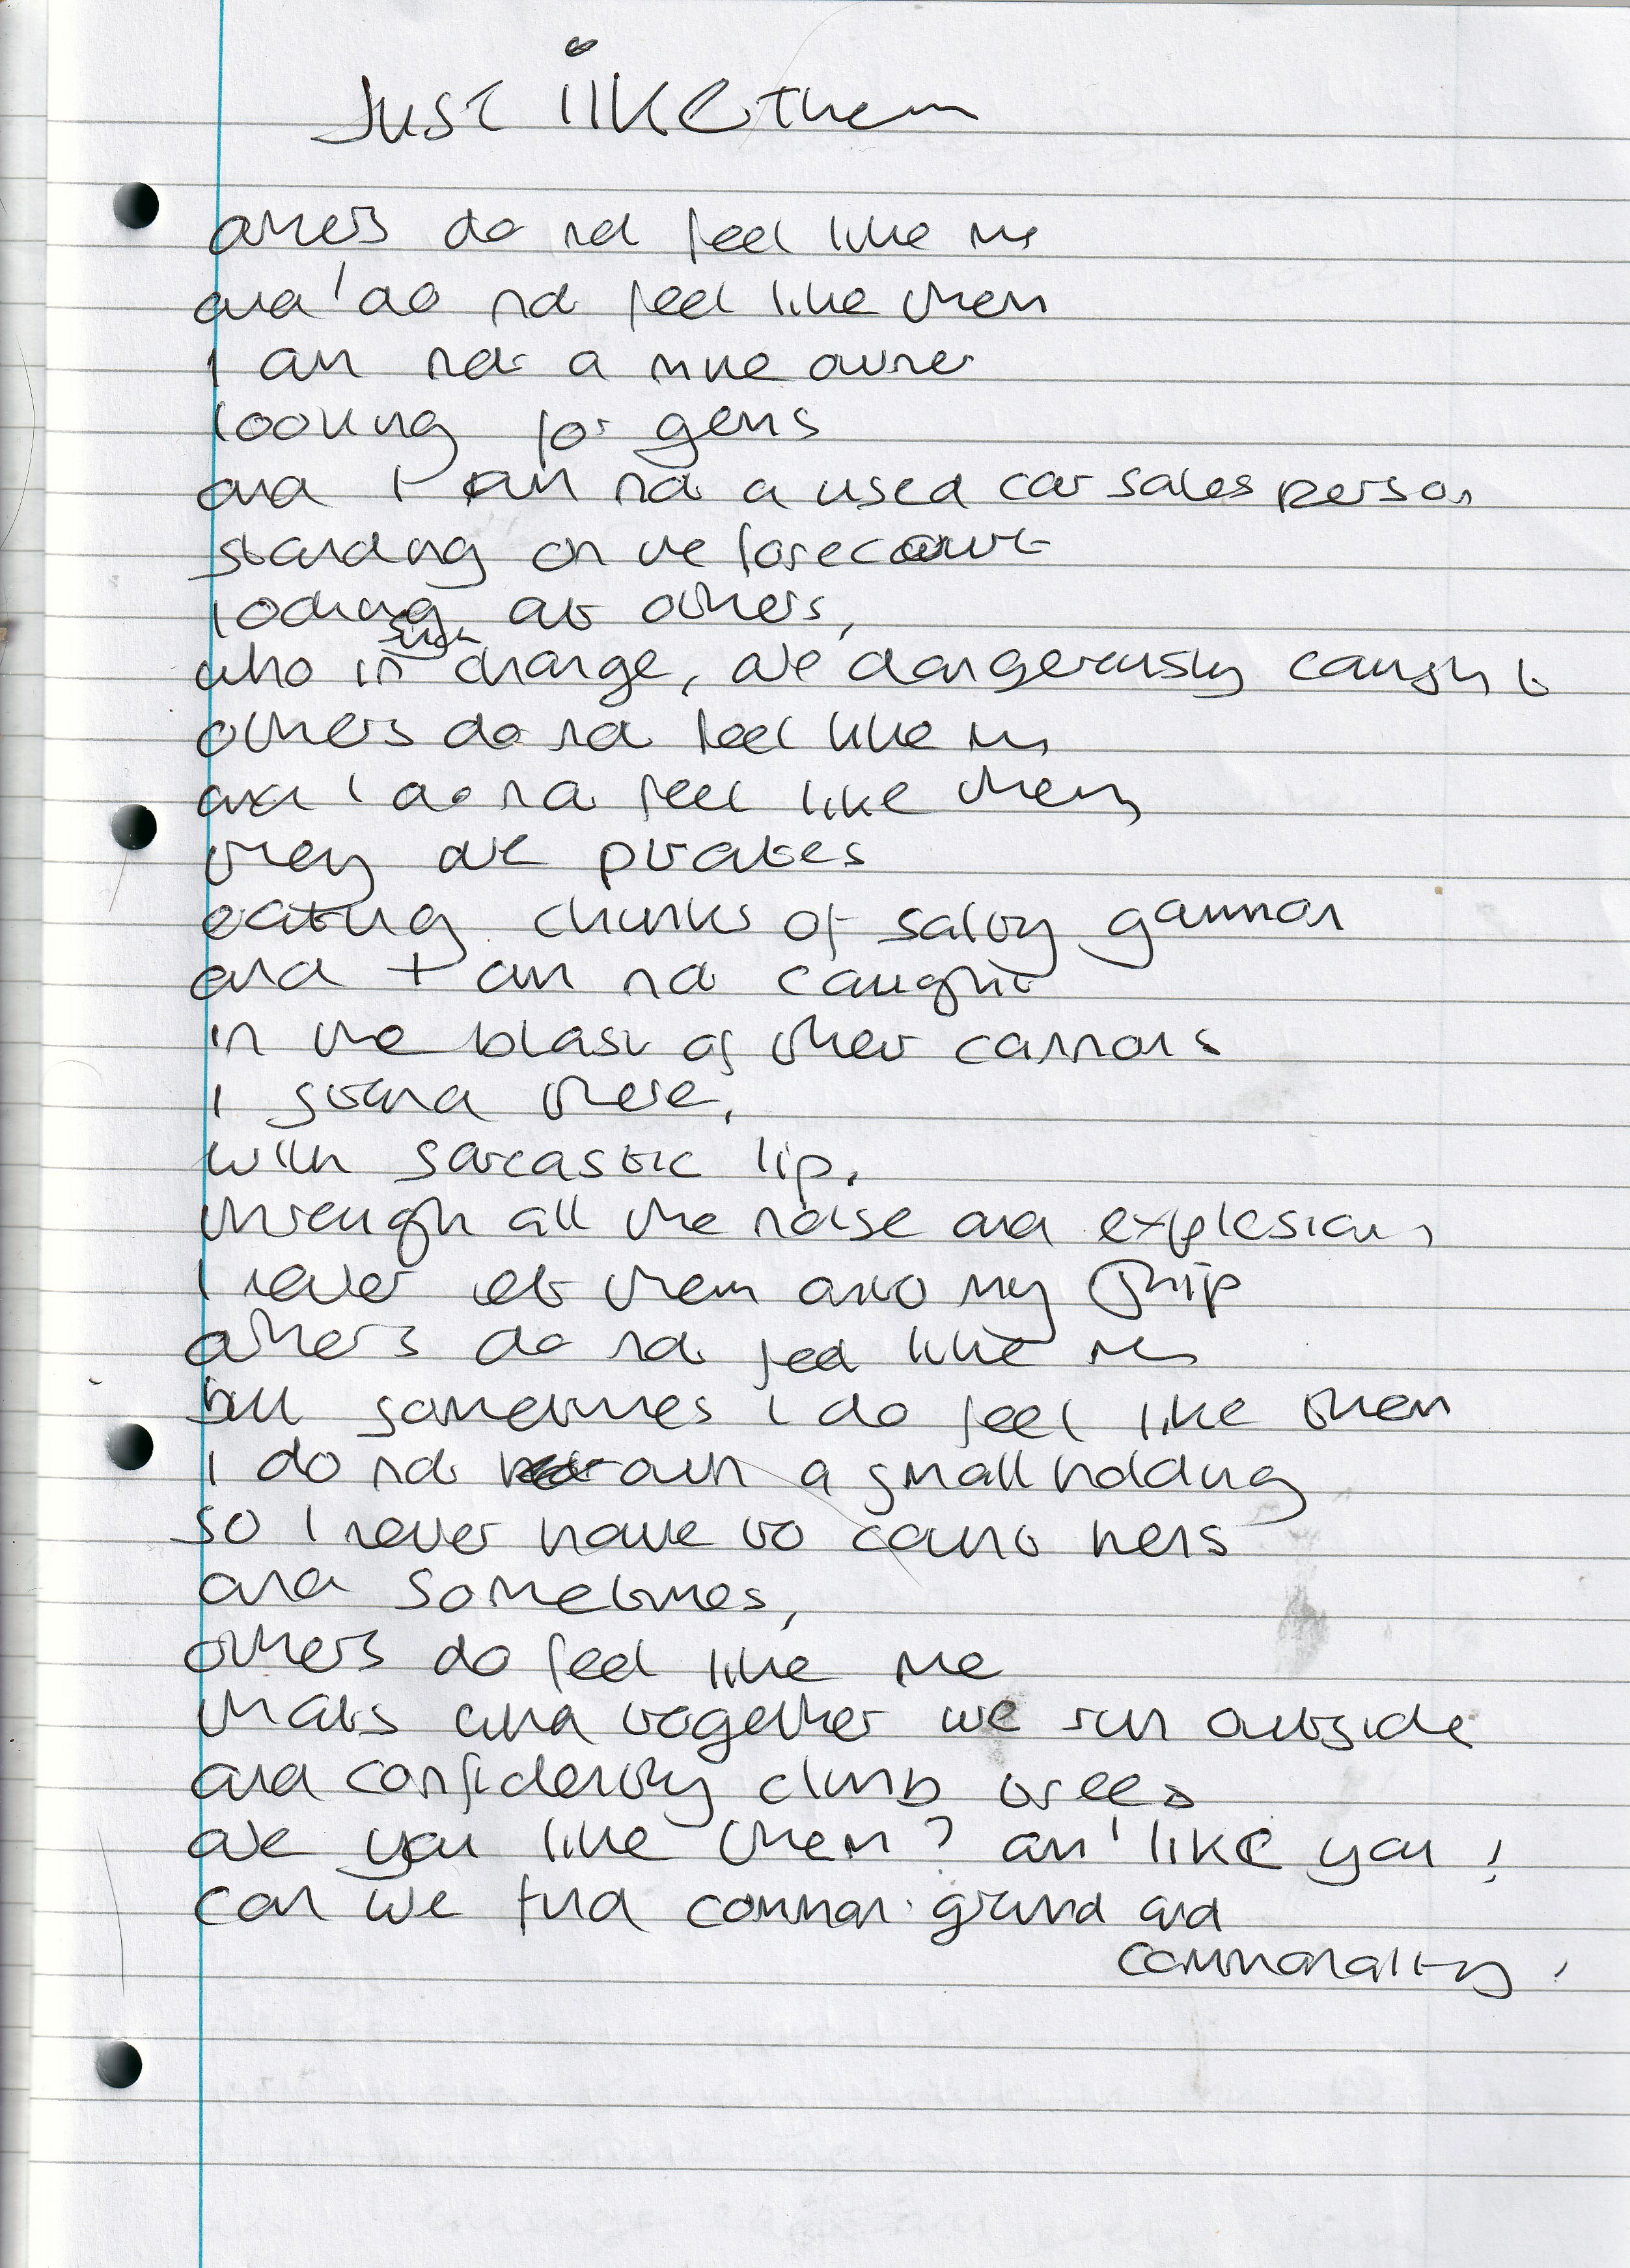 Just like them
others do not feel like me
and I do not feel like them
I am not a mine owner
looking for gems
and I am not a used car sales person
standing on the forecourt
looking at others,
who in such change, are dangerously caught
others do not feel like me
and I do not feel like them
they are pirates
eating chunks of salty gammon
and I am not caught
in the blast of their cannons
I stand there,
with sarcastic lip,
through all the noise and explosions
I never let them onto my ship
others do not feel like me
but sometimes I do feel like them
I do not own a small holding
so I never have to count hens
and sometimes,
others do feel like me
thats when together we run outside
and confidently climb trees
are you like them? am I like you!
can we find common ground and
commonality!